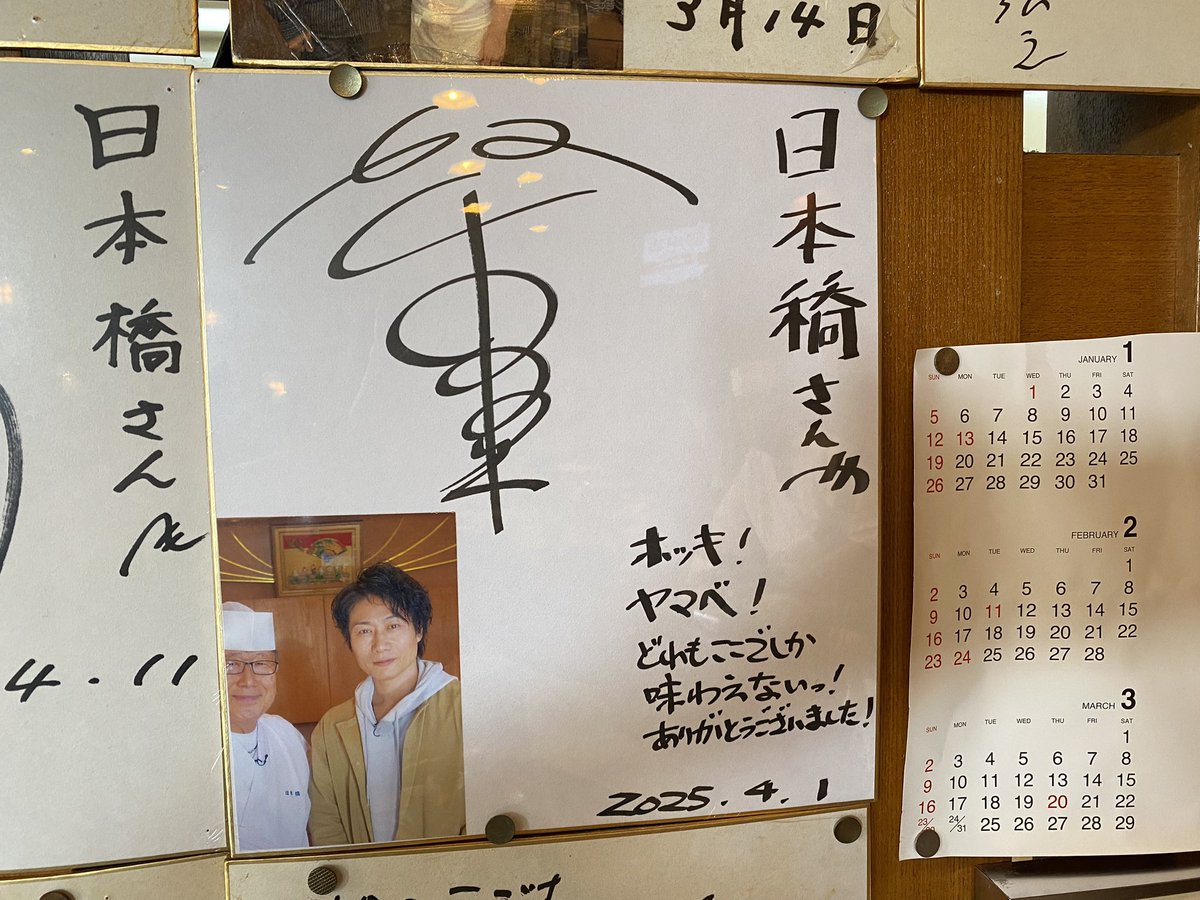 3月14日
日本橋さん
4.11
日本橋さん
ホッキ!
ヤマベ!
どれもここでしか
味わえないっ!
ありがとうございました!
2025.4.1
JANUARY 1
SUN MON TUE WED THU FRI SAT
1 2 3 4
5 6 7 8 9 10 11
12 13 14 15 16 17 18
19 20 21 22 23 24 25
26 27 28 29 30 31
FEBRUARY 2
SUN MON TUE WED THU FRI SAT
1
2 3 4 5 6 7 8
9 10 11 12 13 14 15
16 17 18 19 20 21 22
23 24 25 26 27 28
MARCH 3
SUN MON TUE WED THU FRI SAT
1
2 3 4 5 6 7 8
9 10 11 12 13 14 15
16 17 18 19 20 21 22
23/30 24/31 25 26 27 28 29